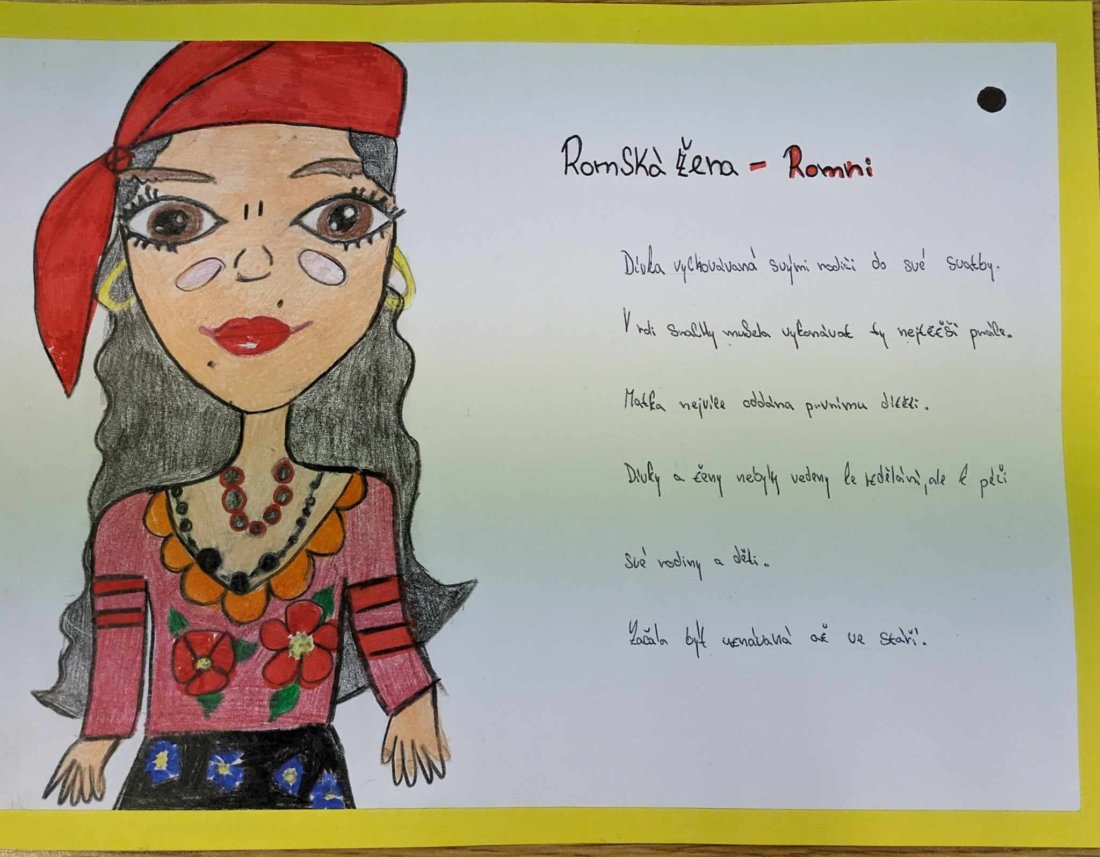 Romská žena - Romni
Dívka vychovávaná svými rodiči do své svatby.
V rdi snachy musela vykonávat ty nejtěžší práce.
Matka nejvíce oddána prvnímu dítěti.
Dívky a ženy nebyly vedeny ke vzdělání, ale k péči
své rodiny a dětí.
Začala být uznávaná až ve stáří.